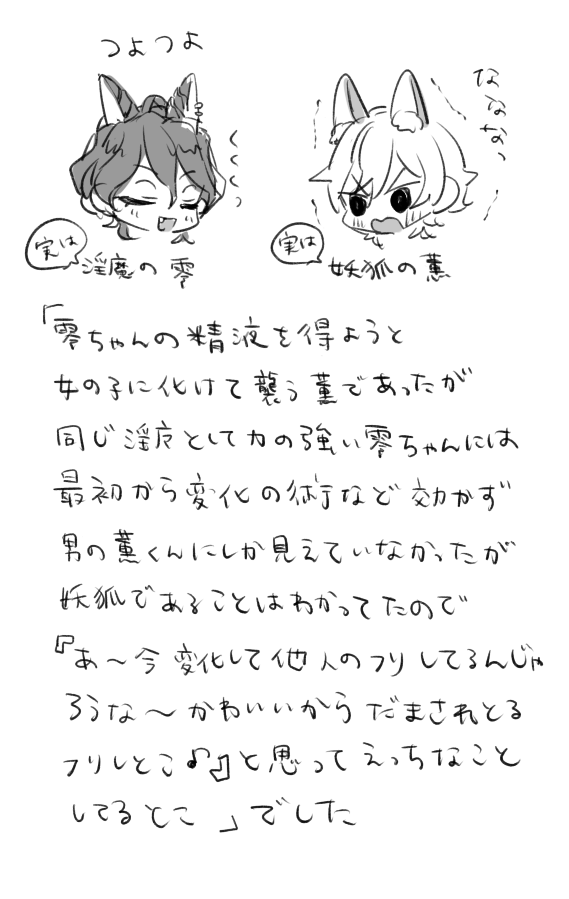 つよつよ
ななな、
実は
淫魔の零
実は
妖狐の薫
「零ちゃんの精液を得ようと
女の子に化けて襲う薫であったが
同じ淫魔として力の強い零ちゃんには
最初から変化の術など効かず
男の薫くんにしか見えていなかったが
妖狐であることはわかってたので
『あ～今変化して他人のフリしてるんじゃ
ろうな～かわいいからだまされとる
フリしとこ♪』と思ってえっちなこと
してるとこ」でした